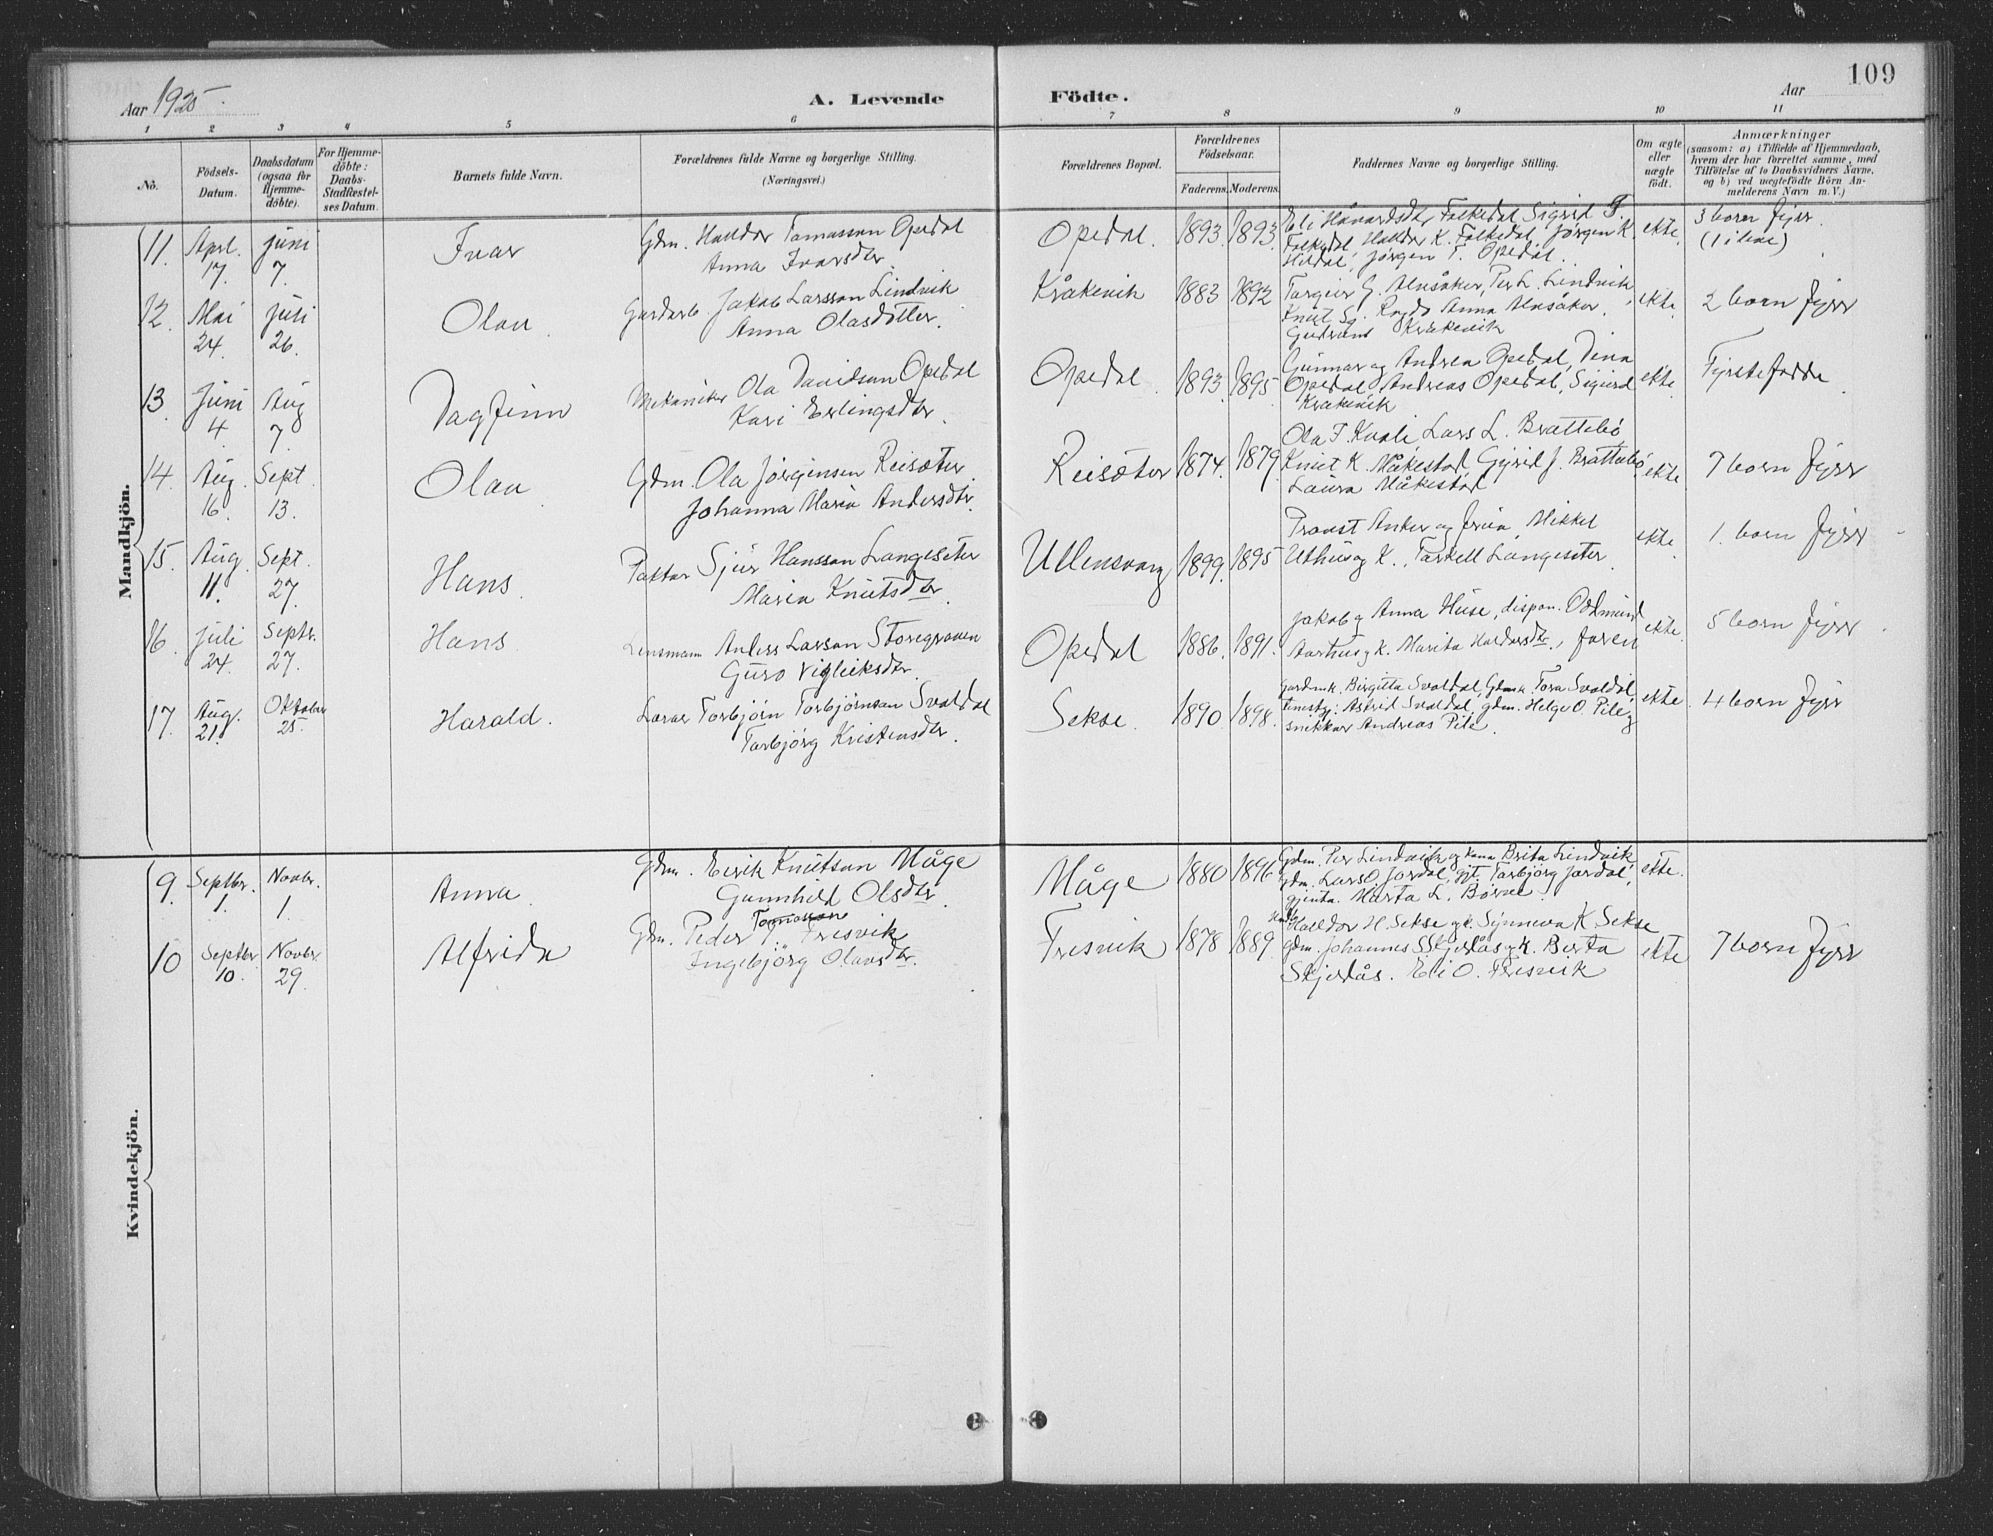 109
Aar 1925.
A. Levende Födte.
Aar
1 2 3 4 5 6 7 8 9 10 11
No.
Födsels-Datum.
Daabsdatum (ogsaa for Hjemmedöbte).
For Hjemmedöbte: Daabs-Stadfæstelses Datum.
Barnets fulde Navn.
Forældrenes fulde Navne og borgerlige Stilling. (Næringsvei.)
Forældrenes Bopæl.
Forældrenes Födselsaar.
Faderens. Moderens.
Faddernes Navne og borgerlige Stilling.
Om ægte eller uægte födt.
Anmærkninger
(saasom: a) i Tilfælde af Hjemmedaab,
hvem der har forrettet samme, med
Tilföielse af to Daabsvidners Navne,
og b) ved uægtefödte Börn An-
melderens Navn m. V.)
Mandkjön.
11. April 17. Juni 7.
Ivar
Gdm. Halldor Tomasson Opedal
Anna Ivarsdtr.
Opedal. 1893. 1893.
Eli Håvardsdtr Folkedal Sigrid
Folkedal Halldor K. Folkedal, Jørgen K.
Hildal, Jørgen T. Opedal.
ekte.
3 born fyrr.
(1 i live)
12. Mai 24. Juli 26.
Olav
Gardarb. Jakob Larsson Lindvik
Anna Olasdotter.
Kråkevik 1883 1892
Torgeir G. Alnsåker, Per L. Lindvik,
Knut S. Anna Alnsåker.
Gudrun Kråkevik
ekte.
2 born fyrr
13. Juni 4. Aug 7.
Dagfinn
Mekaniker Ola Davidson Opedal
Kari Erlingsdtr.
Opedal 1893. 1895.
Gunnar og Andrea Opedal, Dina
Opedal, Andreas Opedal, Sigurd
Kråkevik
ekte
Fyrstefødde
14. Aug. 16. Sept. 13.
Olav
Gdm. Ola Jørgensen Reisæter
Johanna Maria Andersdtr.
Reisæter 1874. 1879.
Ola T. Kvale, Lars L. Brattebø
Knut K. Måkestad, Gyrid J. Brattebø
Laura Måkestad
ekte
7 born fyrr
15. Aug. 11. Sept. 27.
Hans
Faktor Sjur Hansson Langeseter
Maria Knutsdtr.
Ullensvang 1899. 1895
Provst Anker og frua, Mikkel
Uthus og K., Torkell Langeseter.
ekte.
1. born fyrr
16. Juli 24. Septr. 27.
Hans
Lensmann Anders Larson Storegraven
Guro Vigleiksdtr.
Opedal 1886. 1891.
Jakob og Anna Huse, dispon. Oddmund
Aarhus og k. Marita Haldorsdtr.,
ekte.
5 born fyrr
17. Aug. 21. Oktober 25.
Harald.
Lærer Torbjörn Torbjörnson Svaldal
Torbjörg Kristensdtr.
Sekse. 1890. 1898.
Gardmk. Birgitta Svoldal, Gdmk Tora Svoldal,
Astrid Svaldal, gdm. Helge O. Pile og
snikkar Andreas Pile.
ekte
4 born fyrr
Kvindekjön.
9. Septbr. 1. Novbr. 1.
Anna
Gdm. Eirik Knutson Måge
Gunnhild Olsdtr.
Måge 1880 1896
Gdm. Per Lindvik og kona Brita Lindvik,
Gdm. Lars O. Jordal, gjt. Torbjörg Jordal,
gjenta. Marta L. Börve.
ekte.
10 Septbr. 10. Novbr. 29.
Alfrida
Gdm. Peder Tomasson Fresvik
Ingebjörg Olavsdtr.
Fresvik 1878 1889.
Halldor H. Sekse og k. Synneva K. Sekse
Gdm. Johannes Skjeldås og k. Berta
Skjeldås. Eli O. Fresvik
ekte
7 born fyrr